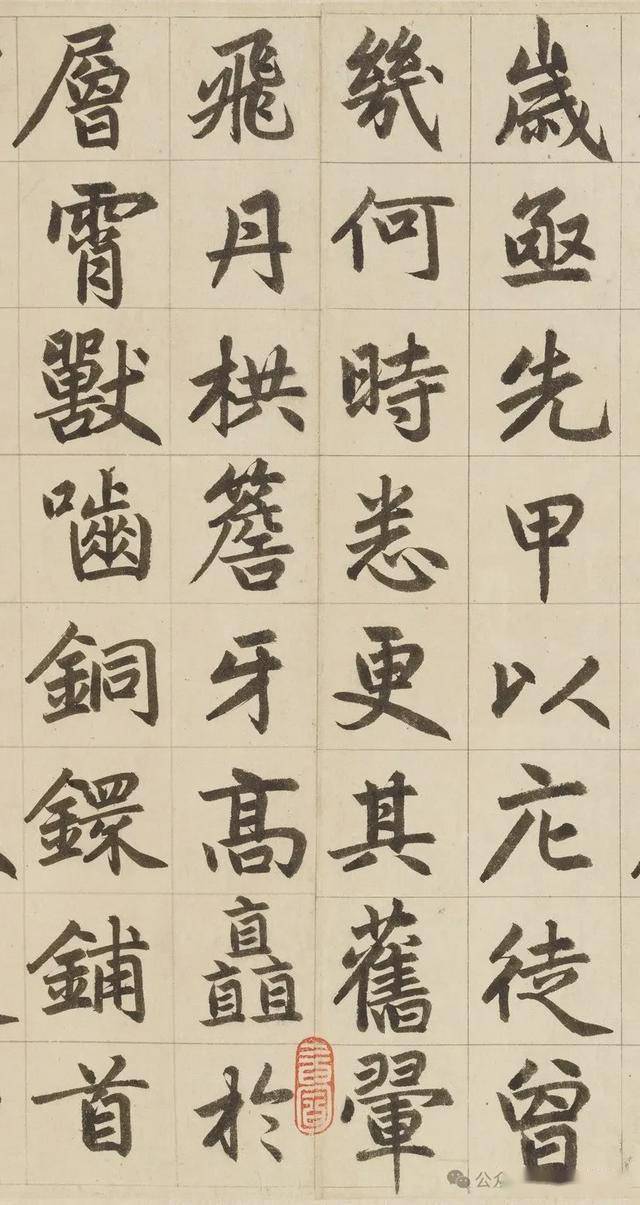 歲亟先甲以庀徒曾
幾何時悉更其舊翬
飛丹栱簷牙髙矗於
層霄獸嚙銅鐶鋪首
公